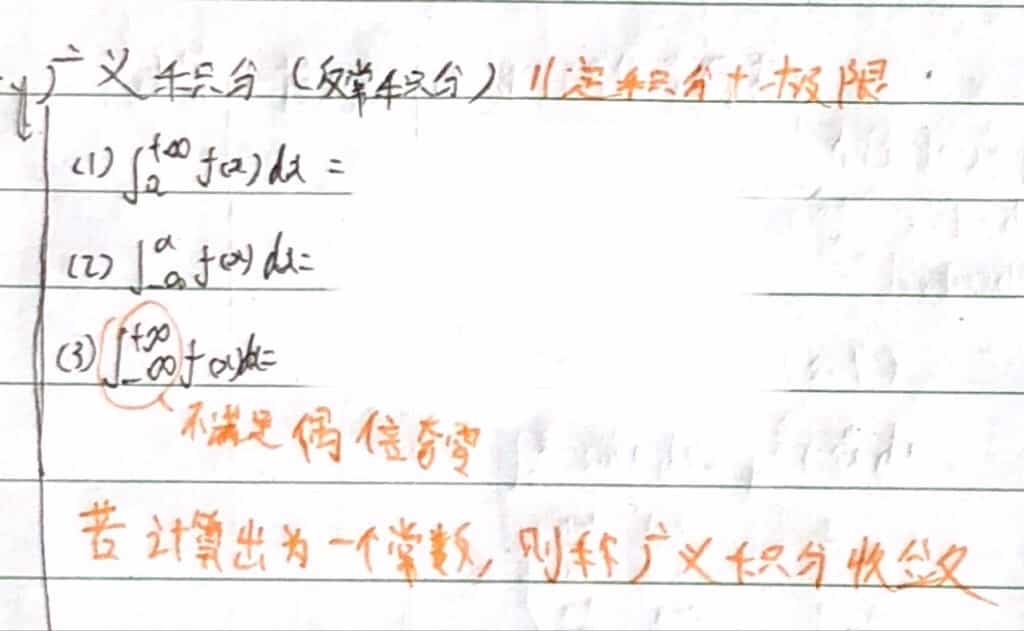 广义积分(反常积分) 定积分+极限
(1) ∫ₐ^{+∞} f(x) dx =
(2) ∫_{-∞}^a f(x) dx=
(3) ∫_{-∞}^{+∞} f(x)dx=
不满足偶倍奇变
若计算出为一个常数,则称广义积分收敛